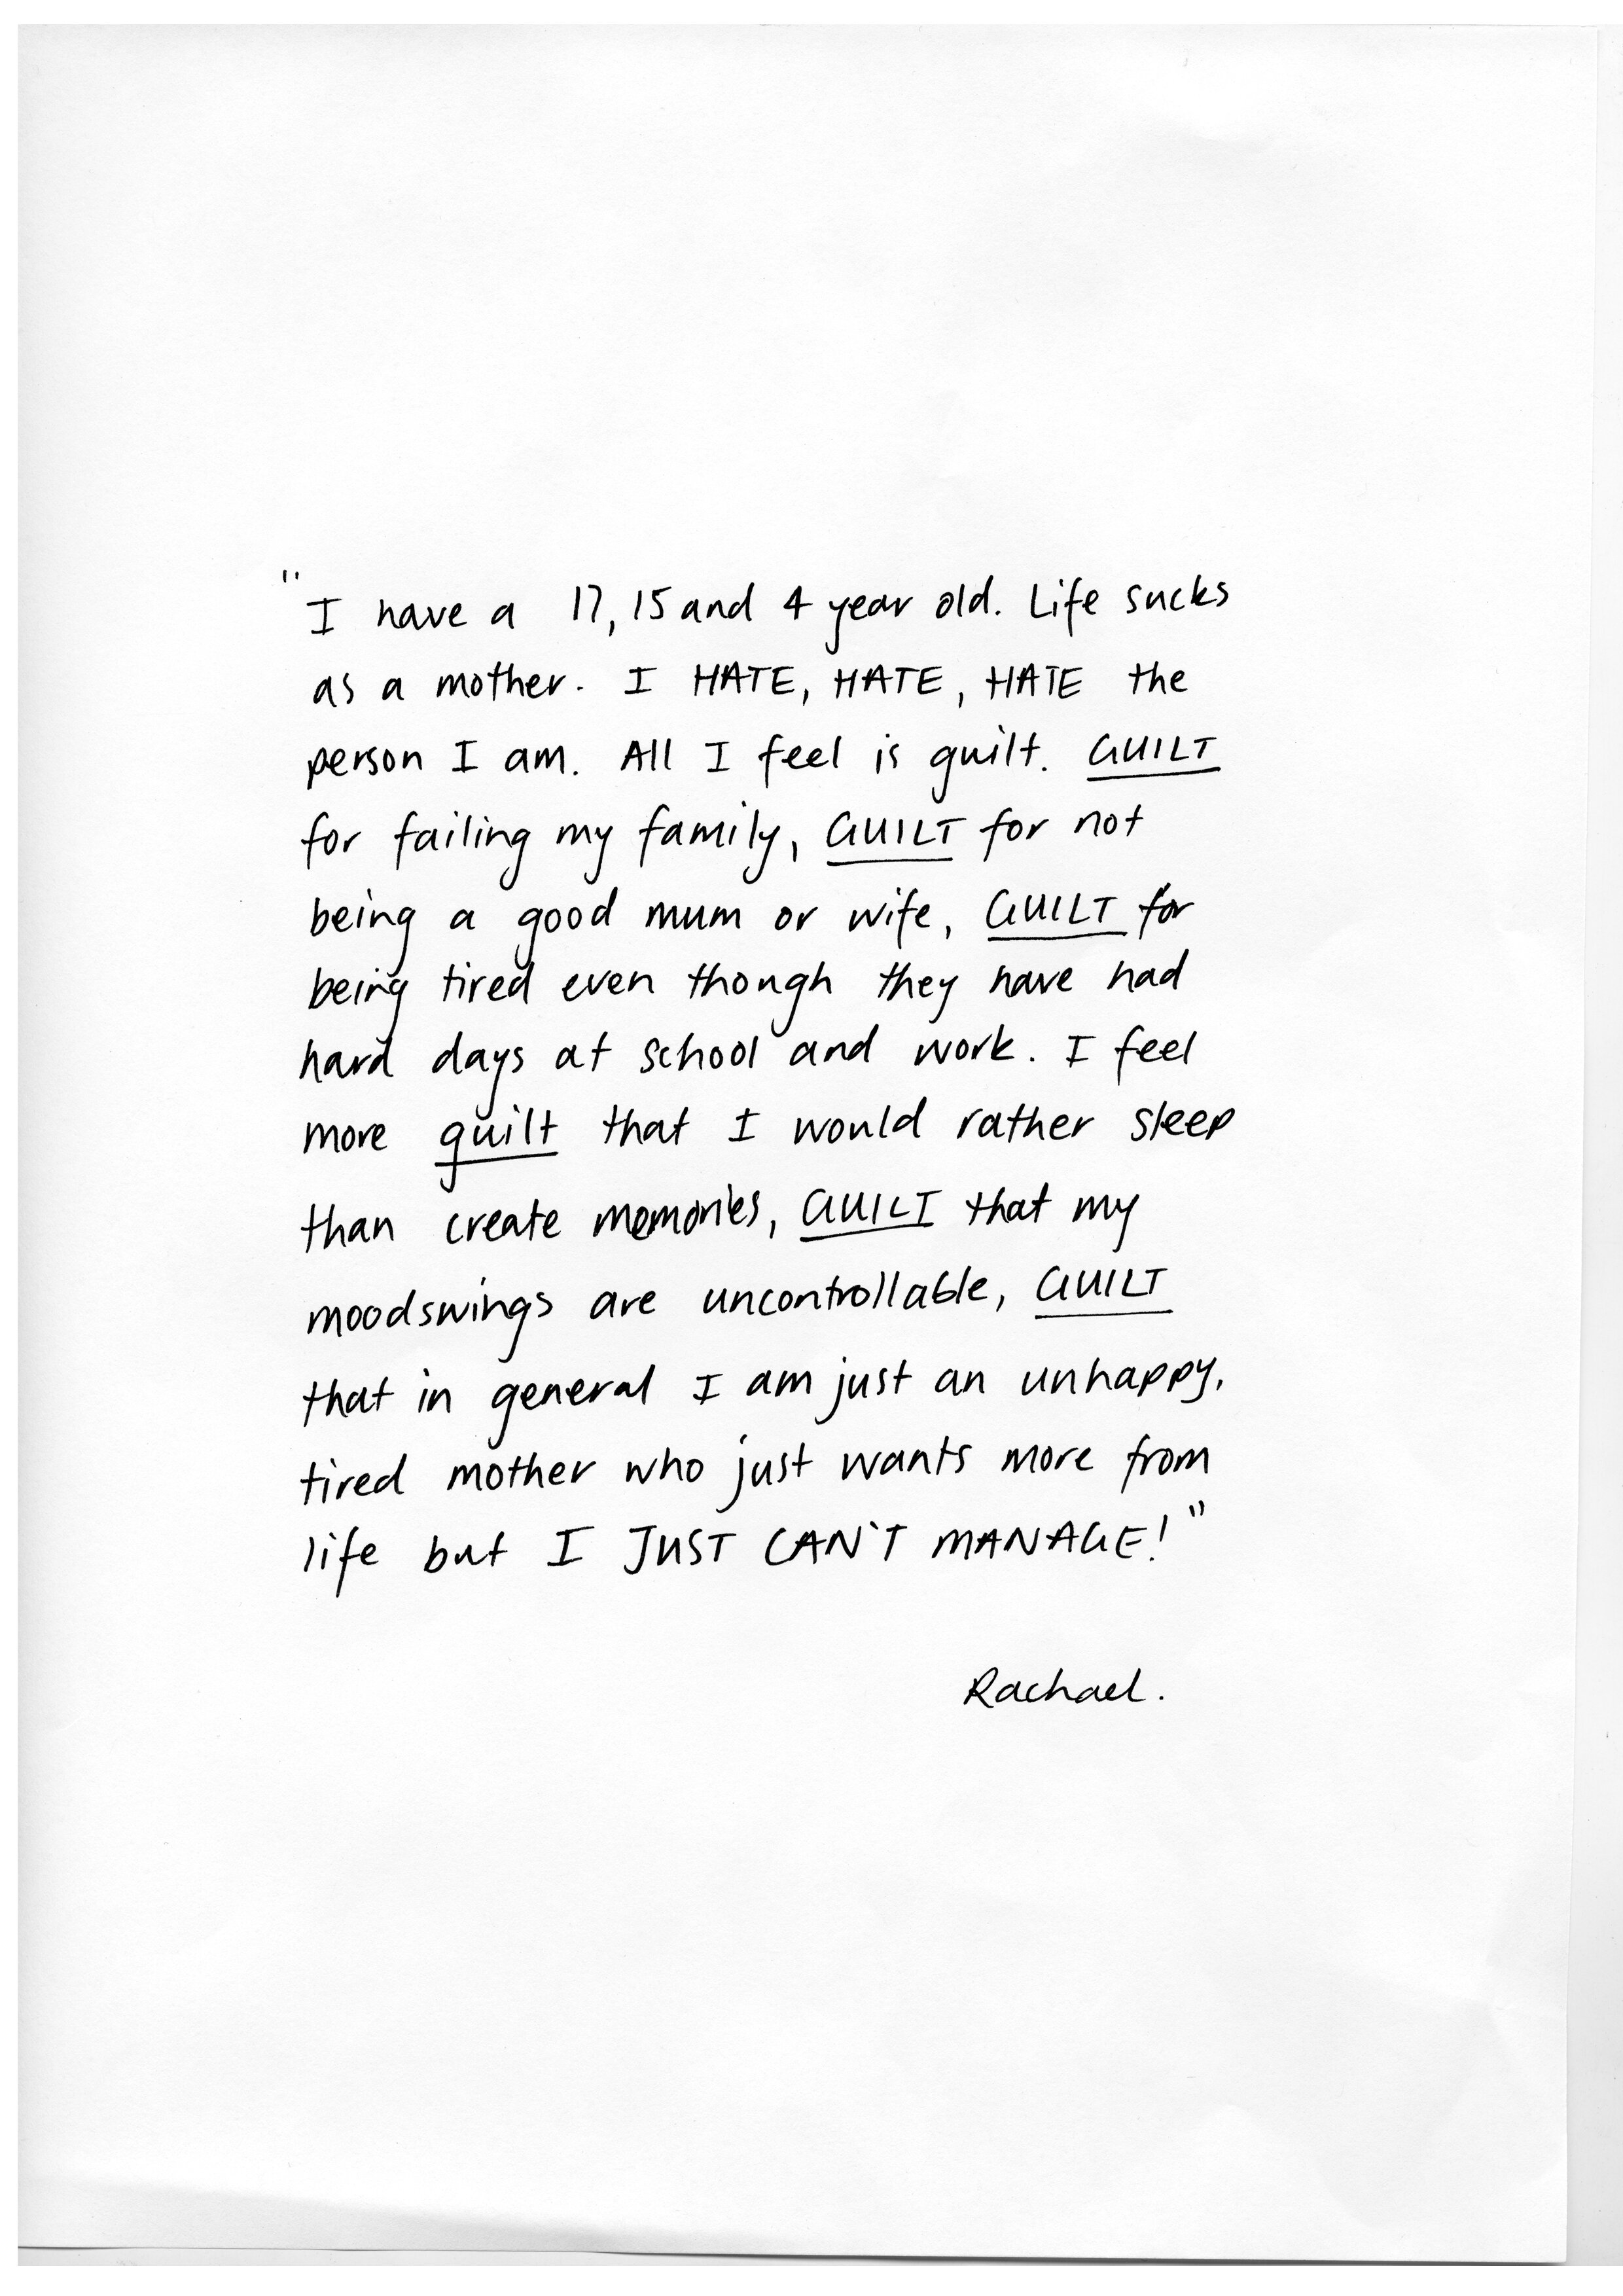 "I have a 17, 15 and 4 year old. Life sucks
as a mother. I HATE, HATE, HATE the
person I am. All I feel is guilt. GUILT
for failing my family, GUILT for not
being a good mum or wife, GUILT for
being tired even though they have had
hard days at school and work. I feel
more guilt that I would rather sleep
than create memories, GUILT that my
moodswings are uncontrollable, GUILT
that in general I am just an unhappy,
tired mother who just wants more from
life but I JUST CAN'T MANAGE!"
Rachael.